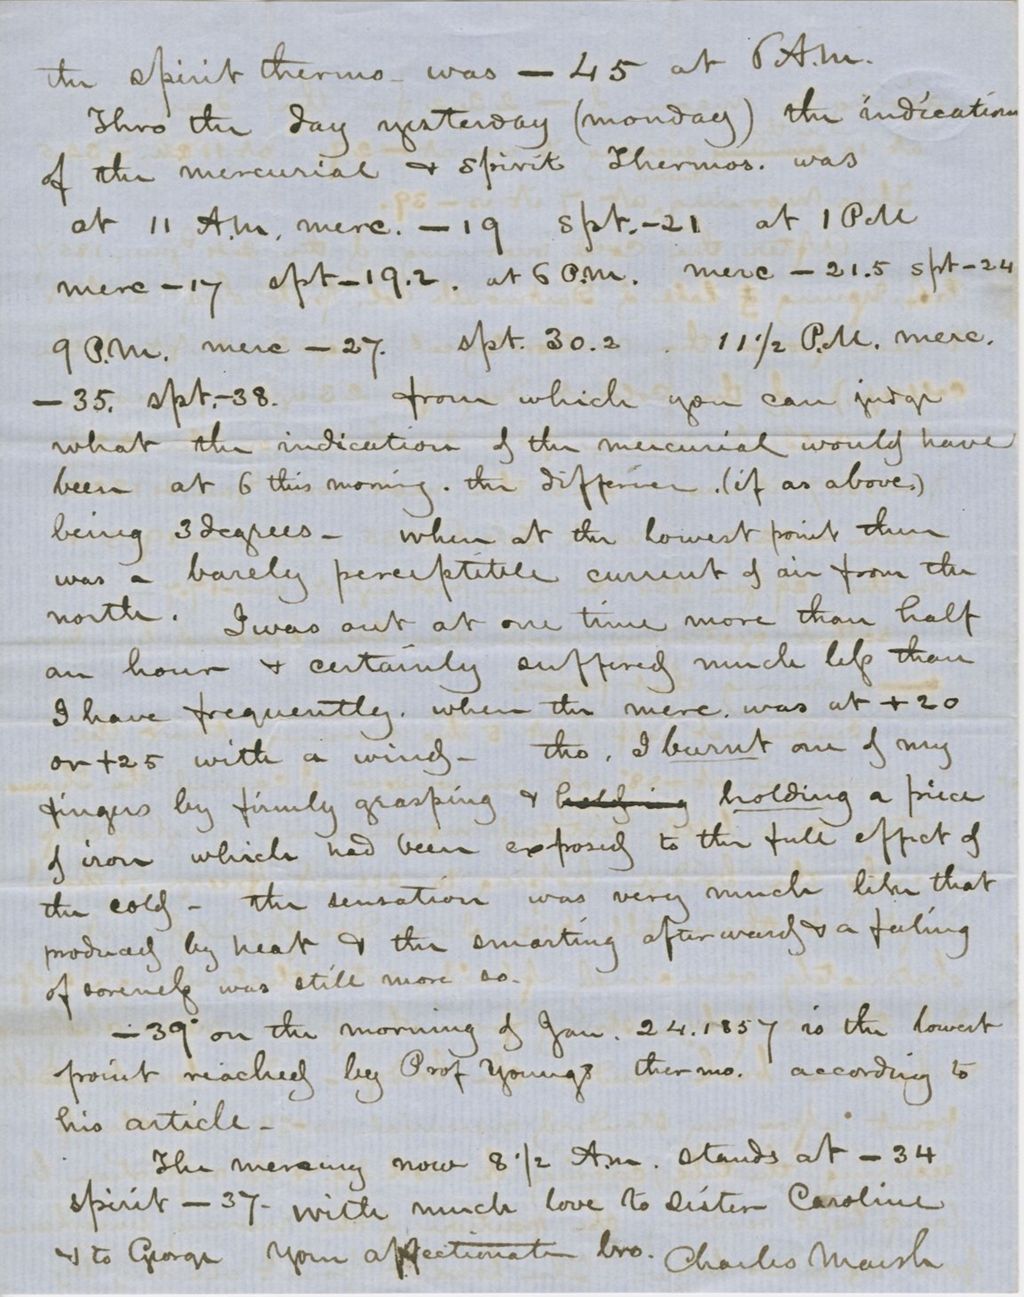 the spirit thermo- was - 45 at 6 A.m.
Thro the day yesterday (monday) the indications
of the mercurial & spirit Thermos. was
at 11 A.m, merc. - 19 spt.-21 at 1 P.M
merc - 17 spt - 19.2. at 6 P.m. merc - 21.5 spt - 24
9 P.M. merc - 27. spt. 30.2. 11 1/2 P.M. merc.
- 35. spt.-38. from which you can judge
what the indication of the mercurial would have
been at 6 this morning. the differince. (if as above,)
being 3 degrees - when at the lowest point there
was a barely perceptible current of air from the
north. I was out at one time more than half
an hour & certainly suffered much less than
I have frequently. when the merc. was at + 20
or + 25 with a wind - tho, I burnt one of my
fingers by firmly grasping & holding a piece
of iron which had been exposed to the full effect of
the cold - the sensation was very much like that
produced by heat & the smarting afterward & a feeling
of soreness was still more so.
- 39° on the morning of Jan. 24. 1857 is the lowest
point reached by Prof Youngs thermo. according to
his article -
The mercury now 8 1/2 A.m. stands at - 34
spirit - 37 - with much love to sister Caroline
& to George Your affectionate bro. Charles Marsh